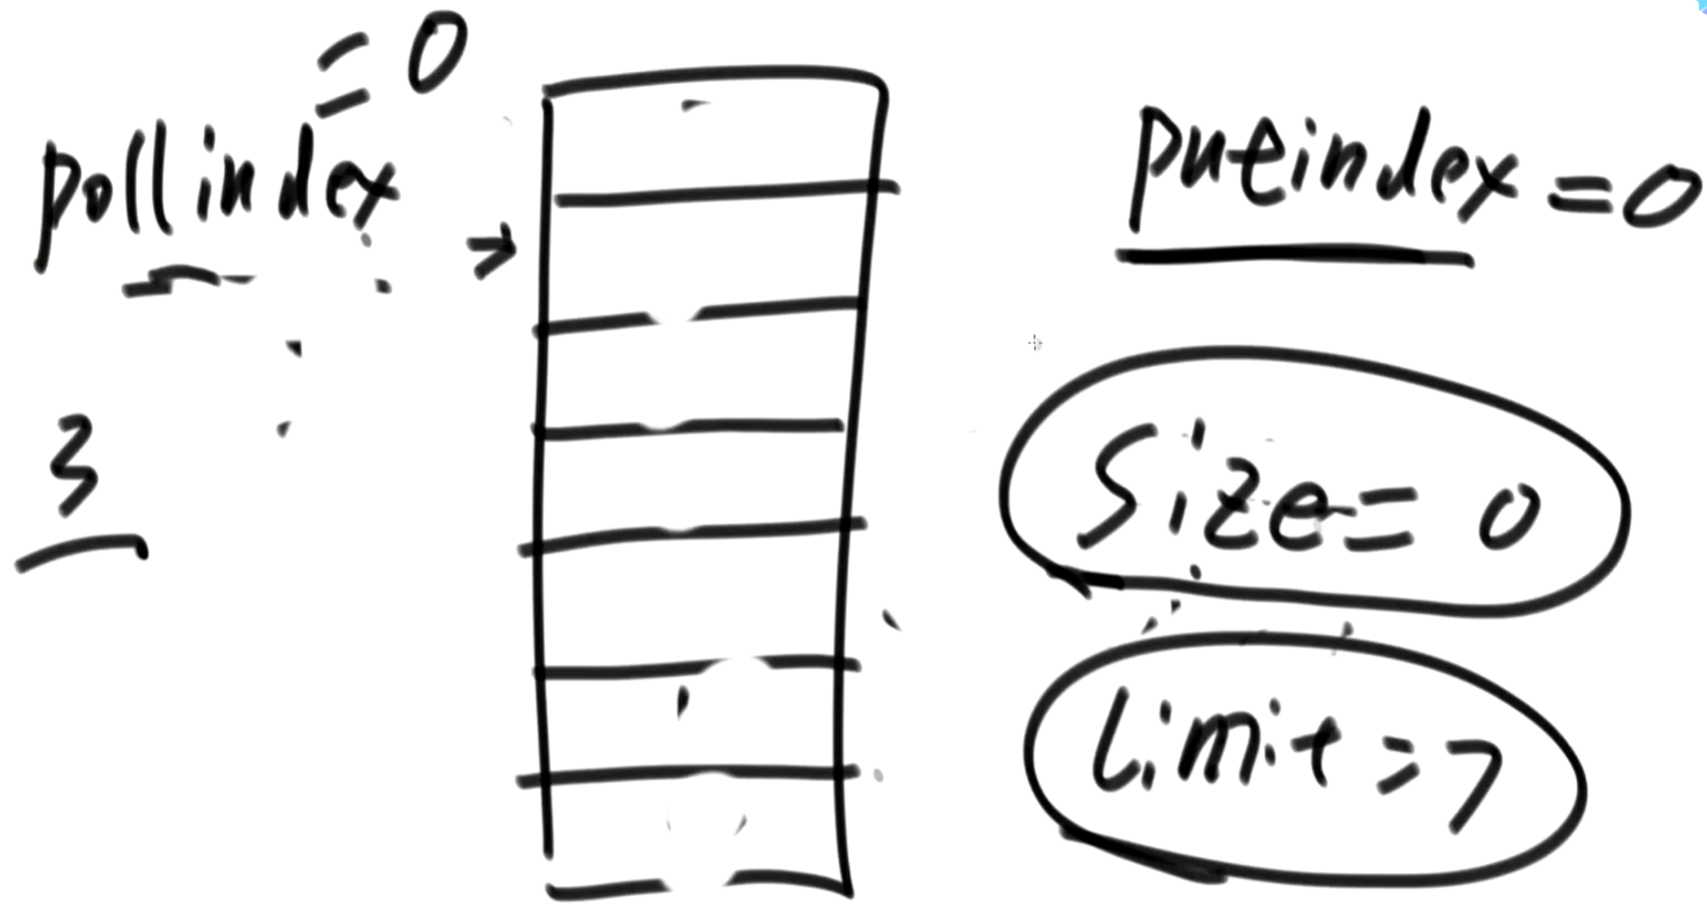 pollindex = 0
putindex = 0
3
Size = 0
Limit = 7